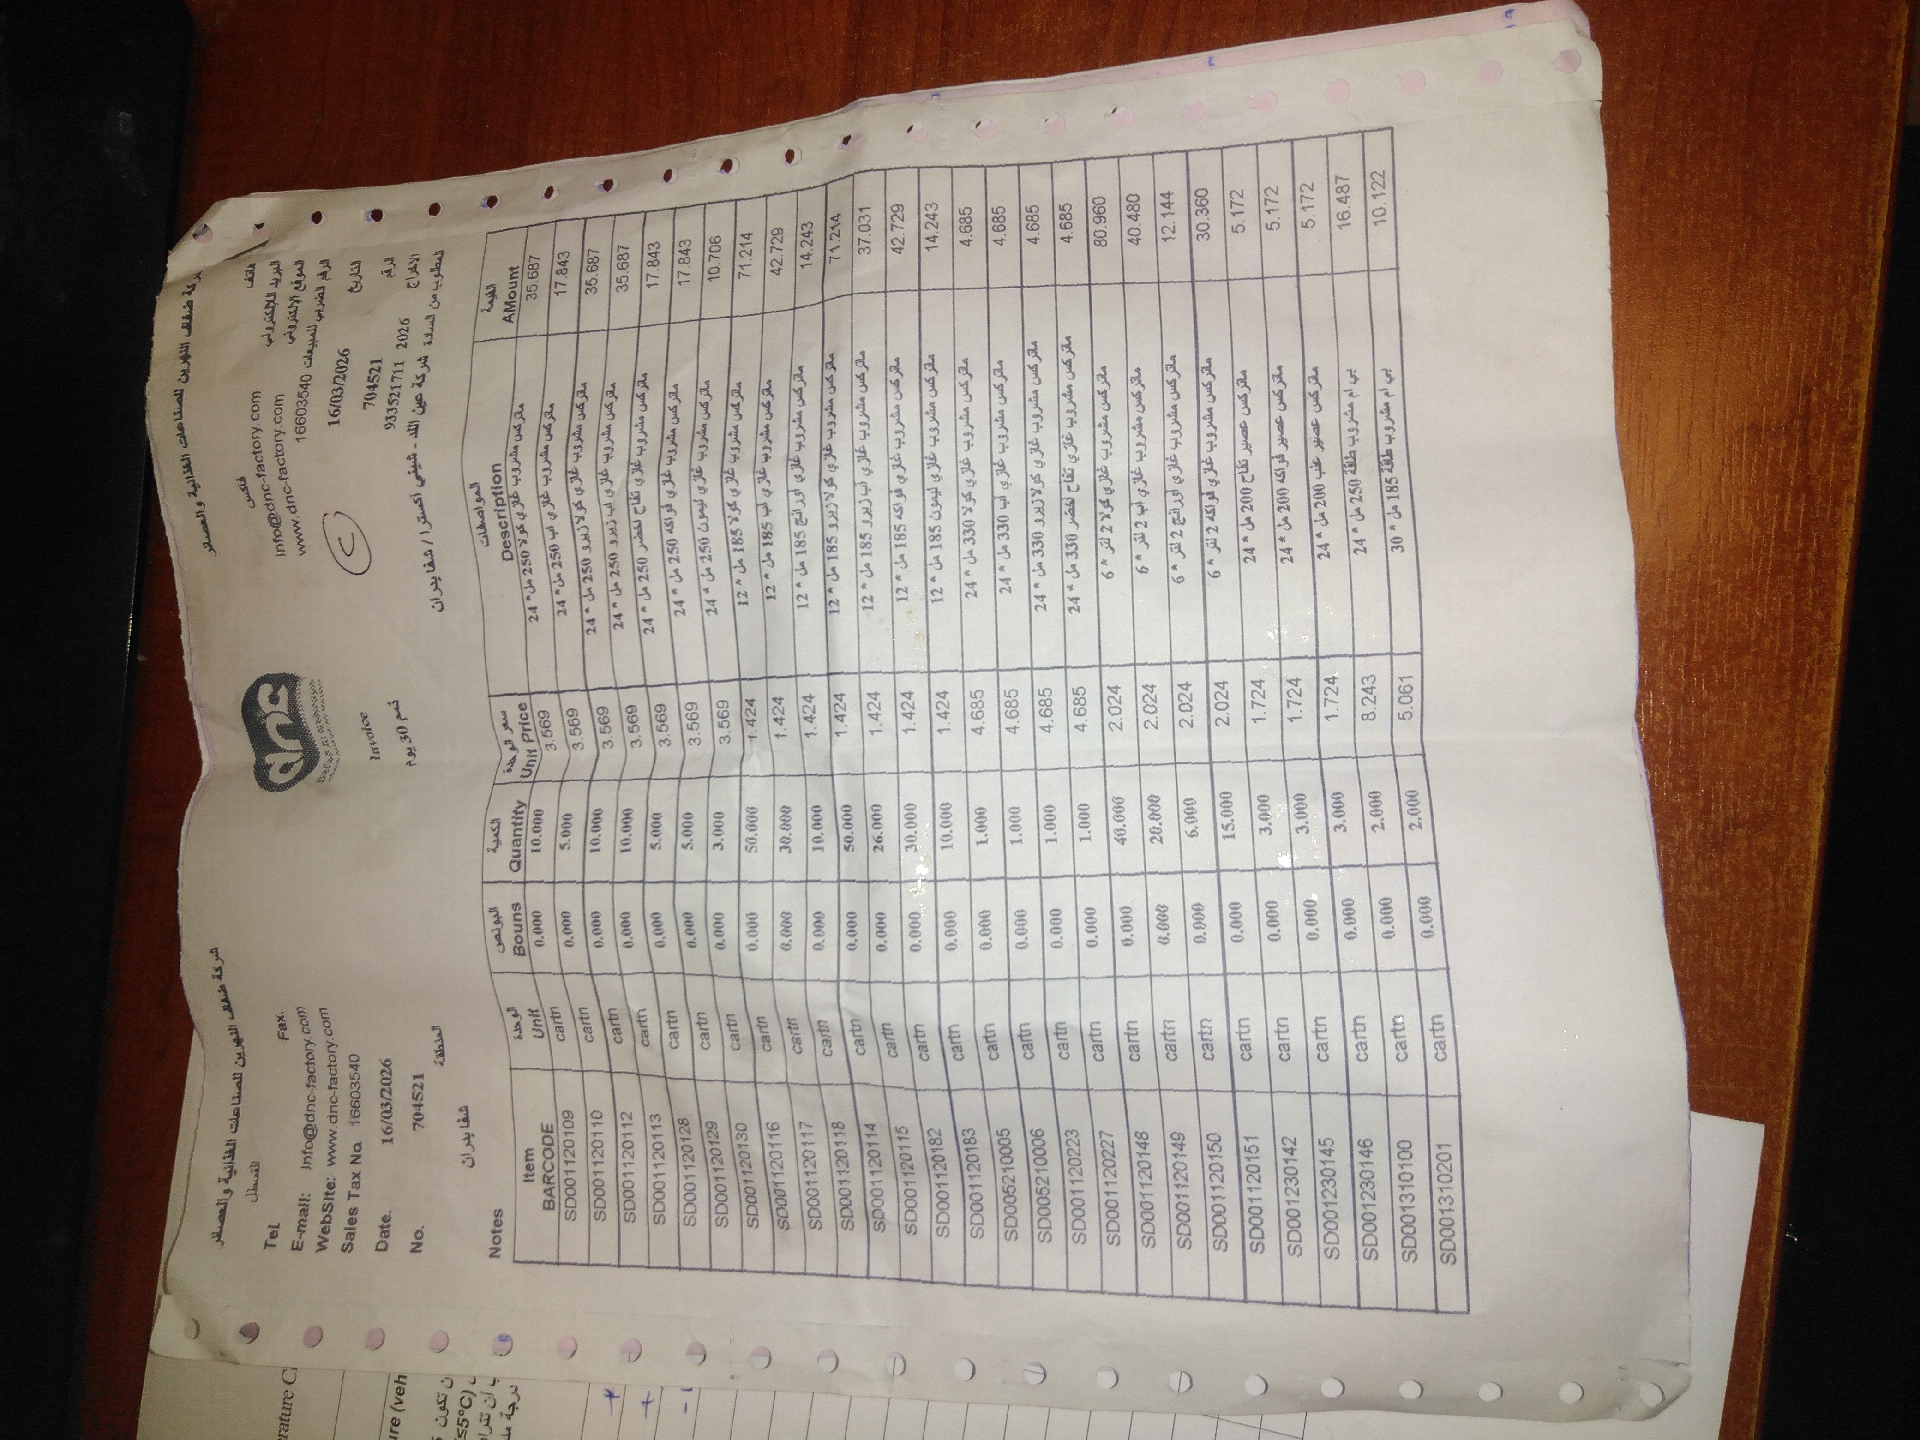 شركة ضفاف النهرين للصناعات الغذائية والعصائر
شركة ضفاف النهرين للصناعات الغذائية والعصائر
القسطل
Tel. Fax. فاكس هاتف
E-mail: Info@dnc-factory.com Info@dnc-factory.com البريد الالكتروني
WebSite: www.dnc-factory.com www.dnc-factory.com الموقع الالكتروني
Sales Tax No. 16603540 16603540 الرقم الضريبي للمبيعات
dnc
C
Date. 16/03/2026 Invoice 16/03/2026 التاريخ
No. 704521 704521 الرقم
ذمم 30 يوم 933521711 2026
المنطقة شفا بدران المطلوب من السادة شركة عين الله - شيني اكسترا / شفا بدران
Notes
Item الوحدة البونص الكمية سعر الوحدة المواصفات القيمة
BARCODE Unit Bouns Quantity Unit Price Description AMount
SD001120109 cartn 0.000 10.000 3.569 ماتركس مشروب غازي كولا 250 مل* 24 35.687
SD001120110 cartn 0.000 5.000 3.569 ماتركس مشروب غازي اب 250 مل* 24 17.843
SD001120112 cartn 0.000 10.000 3.569 ماتركس مشروب غازي كولا زيرو 250 مل * 24 35.687
SD001120113 cartn 0.000 10.000 3.569 ماتركس مشروب غازي اب زيرو 250 مل * 24 35.687
SD001120128 cartn 0.000 5.000 3.569 ماتركس مشروب غازي تفاح اخضر 250 مل * 24 17.843
SD001120129 cartn 0.000 5.000 3.569 ماتركس مشروب غازي فواكه 250 مل * 24 17.843
SD001120130 cartn 0.000 3.000 3.569 ماتركس مشروب غازي ليمون 250 مل * 24 10.706
SD001120116 cartn 0.000 50.000 1.424 ماتركس مشروب غازي كولا 185 مل * 12 71.214
SD001120117 cartn 0.000 30.000 1.424 ماتركس مشروب غازي اب 185 مل * 12 42.729
SD001120118 cartn 0.000 10.000 1.424 ماتركس مشروب غازي اورانج 185 مل * 12 14.243
SD001120114 cartn 0.000 50.000 1.424 ماتركس مشروب غازي كولا زيرو 185 مل * 12 71.214
SD001120115 cartn 0.000 26.000 1.424 ماتركس مشروب غازي اب زيرو 185 مل * 12 37.031
SD001120182 cartn 0.000 30.000 1.424 ماتركس مشروب غازي فواكه 185 مل * 12 42.729
SD001120183 cartn 0.000 10.000 1.424 ماتركس مشروب غازي ليمون 185 مل * 12 14.243
SD005210005 cartn 0.000 1.000 4.685 ماتركس مشروب غازي كولا 330 مل * 24 4.685
SD005210006 cartn 0.000 1.000 4.685 ماتركس مشروب غازي اب 330 مل * 24 4.685
SD001120223 cartn 0.000 1.000 4.685 ماتركس مشروب غازي كولا زيرو 330 مل * 24 4.685
SD001120227 cartn 0.000 1.000 4.685 ماتركس مشروب غازي تفاح اخضر 330 مل * 24 4.685
SD001120148 cartn 0.000 40.000 2.024 ماتركس مشروب غازي كولا 2 لتر * 6 80.960
SD001120149 cartn 0.000 20.000 2.024 ماتركس مشروب غازي اب 2 لتر * 6 40.480
SD001120150 cartn 0.000 6.000 2.024 ماتركس مشروب غازي اورانج 2 لتر * 6 12.144
SD001120151 cartn 0.000 15.000 2.024 ماتركس مشروب غازي فواكه 2 لتر * 6 30.360
SD001230142 cartn 0.000 3.000 1.724 ماتركس عصير تفاح 200 مل * 24 5.172
SD001230145 cartn 0.000 3.000 1.724 ماتركس عصير فواكه 200 مل * 24 5.172
SD001230146 cartn 0.000 3.000 1.724 ماتركس عصير عنب 200 مل * 24 5.172
SD001310100 cartn 0.000 2.000 8.243 بي ام مشروب طاقة 250 مل * 24 16.487
SD001310201 cartn 0.000 2.000 5.061 بي ام مشروب طاقة 185 مل * 30 10.122